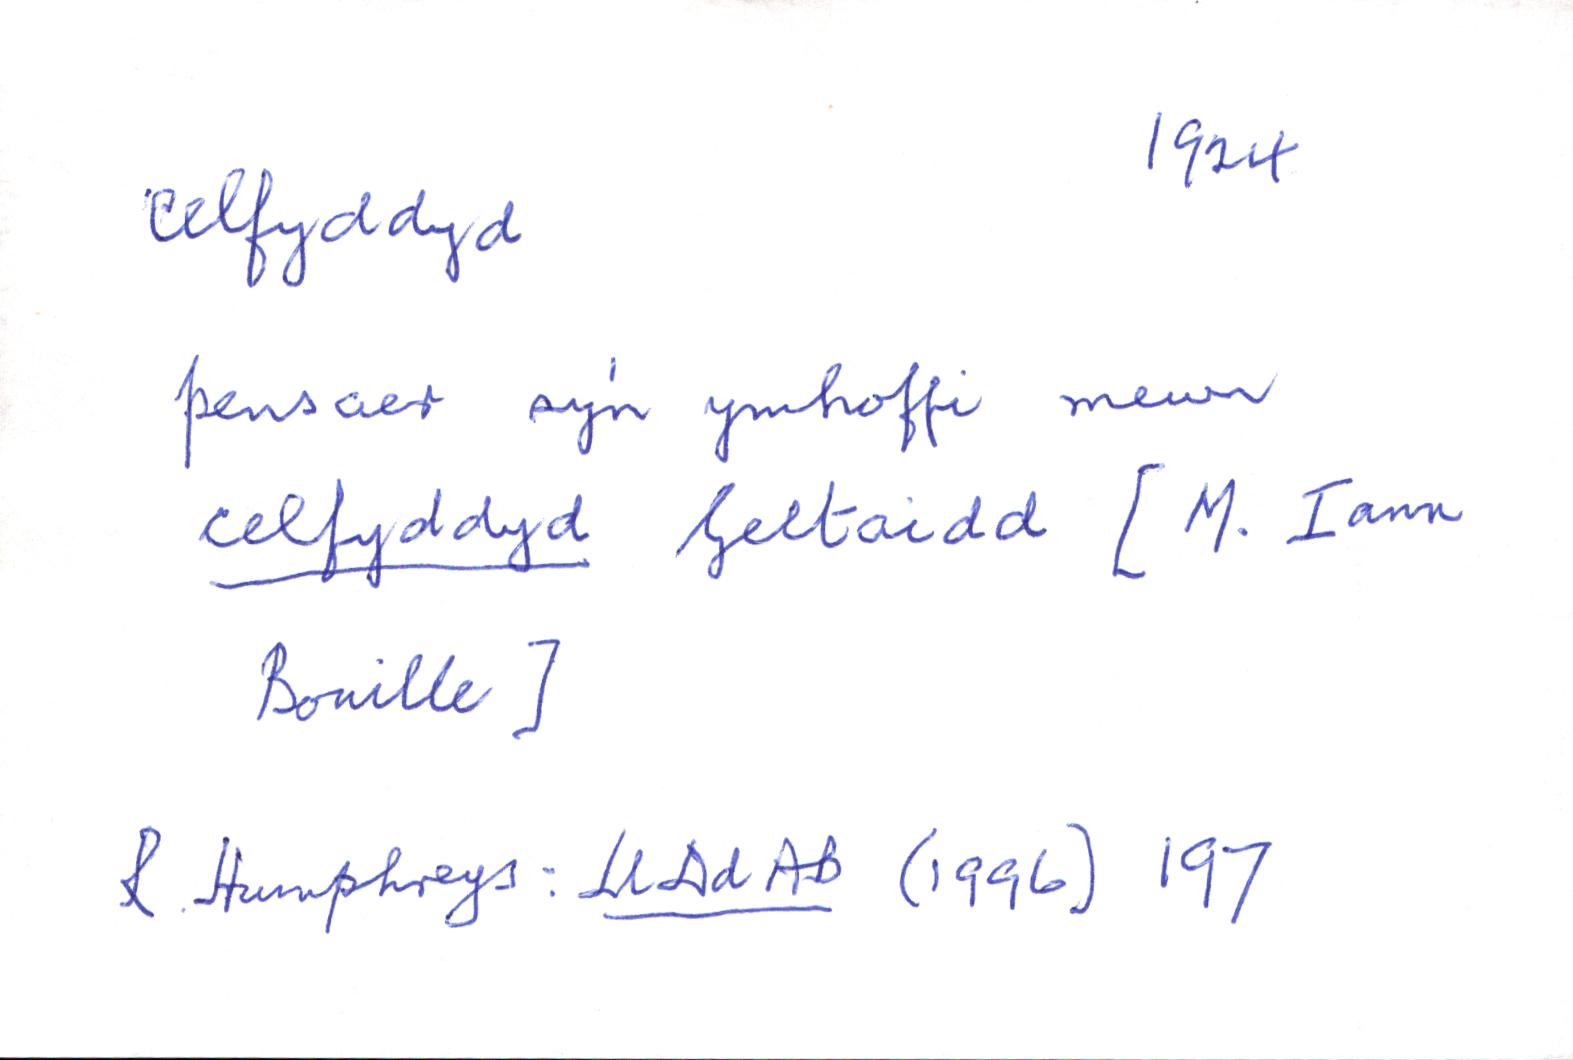 1924
celfyddyd
pensaer sy'n ymhoffi mewn
celfyddyd Geltaidd [M. Iann
Bouille]
Humphreys: LlDdAB (1996) 197